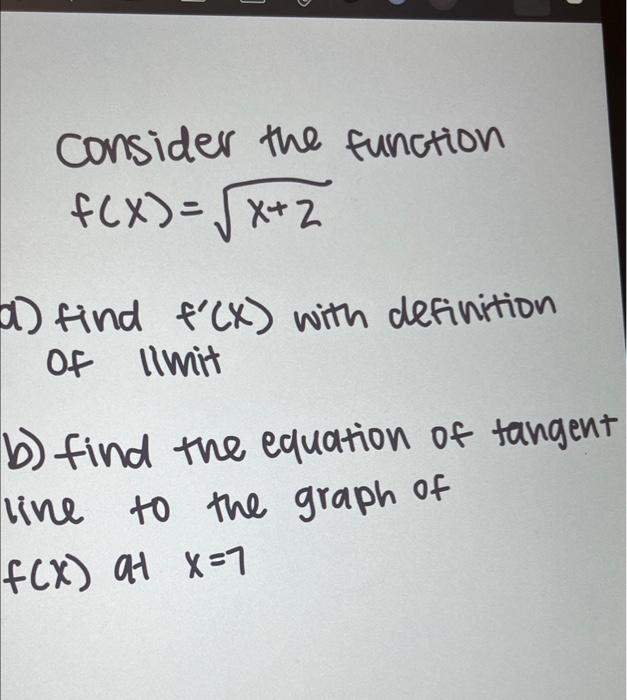 Consider the function
f(x)=√x+2
a) find f'(x) with definition
of limit
b) find the equation of tangent
line to the graph of
f(x) at x=7